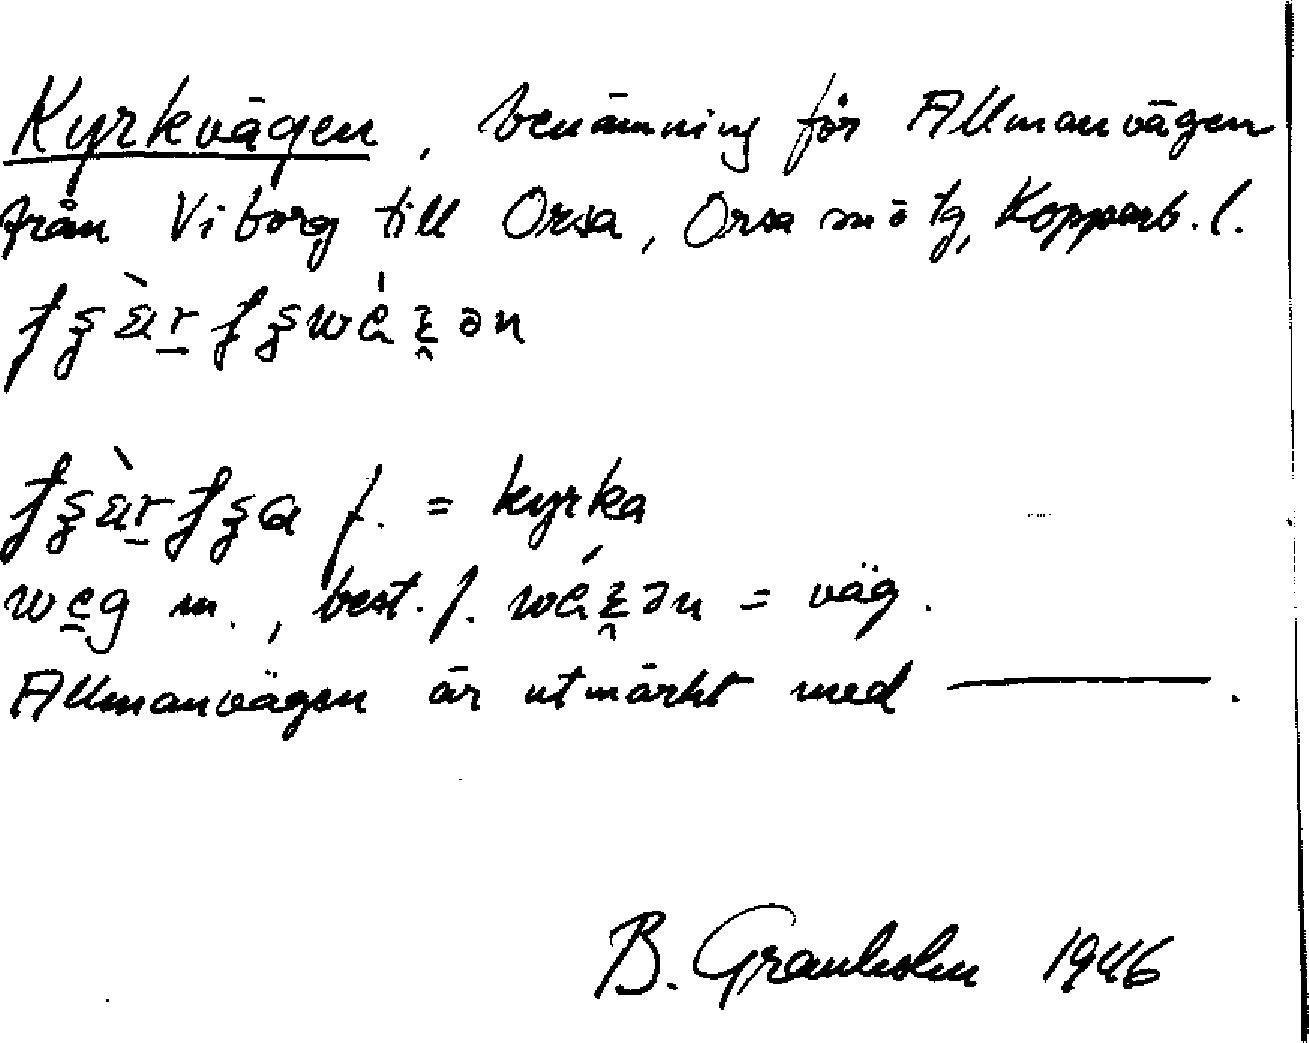 Kyrkvägen, benämning för Allmanvägen
från Viborg till Orsa, Orsa snö tg, Kopparb. l.
f. = kyrka
weg m., best. f. = väg.
Allmanvägen är utmärkt med ———.
B. Granholm 1946